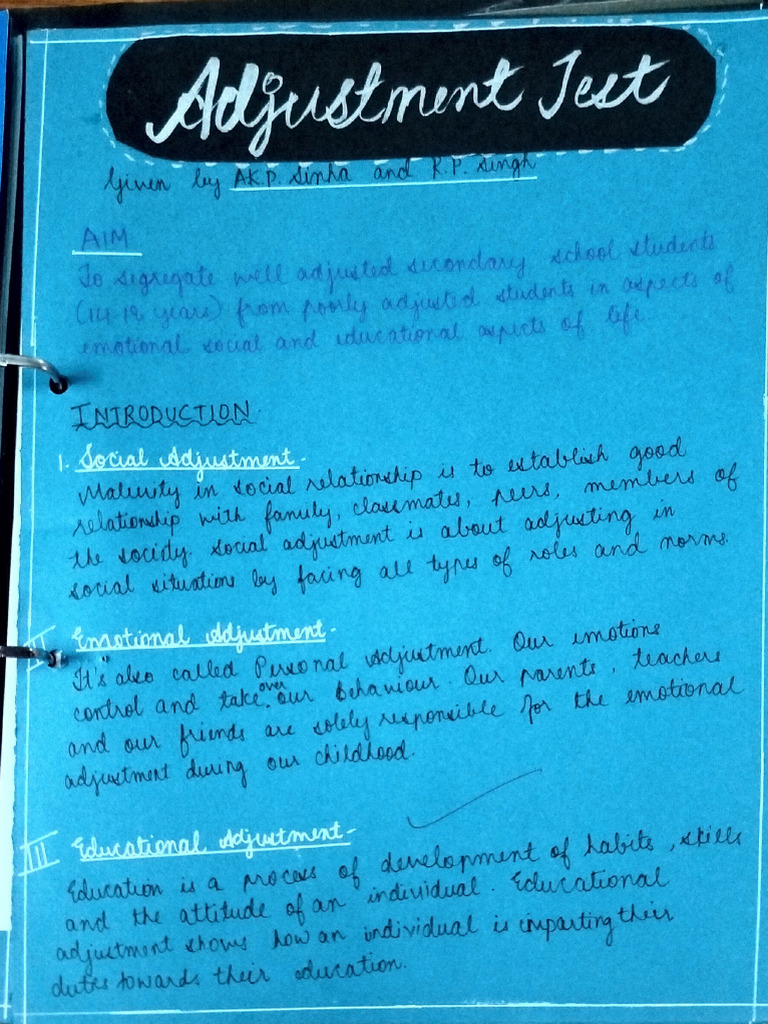 Adjustment Test
Given by A.K.P. Sinha and R.P. Singh
AIM
To segregate well adjusted secondary school students
(14-18 years) from poorly adjusted students in aspects of
emotional social and educational aspects of life
INTRODUCTION.
1. Social Adjustment-
Maturity in social relationship is to establish good
relationship with family, classmates, peers, members of
the society. Social adjustment is about adjusting in
social situations by facing all types of roles and norms.
II Emotional Adjustment-
It's also called Personal Adjustment. Our emotions
control and take over our behaviour. Our parents, teachers
and our friends are solely responsible for the emotional
adjustment during our childhood.
III Educational Adjustment-
Education is a process of development of habits, skills
and the attitude of an individual. Educational
adjustment shows how an individual is imparting their
duties towards their education.